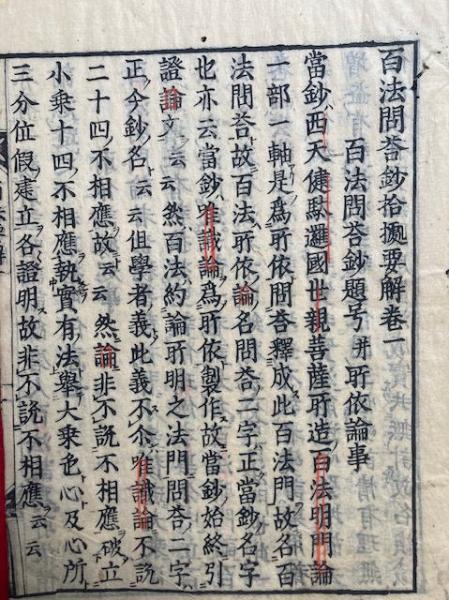 百法問荅鈔拾𢮦要解卷一
百法問荅鈔題号并所依論事
當鈔西天健馱邏國世親菩薩所造百法明門論
一部一軸是爲所依問荅釋成此百法門故名百
法問荅故百法所依論名問荅二字正當鈔名字
也亦云當鈔唯識論爲所依製作故當鈔始終引
證論文云云然百法約論所明之法門問荅二字
正今鈔名云云但學者義此義不尒唯識論不説
二十四不相應故云云然論非不説不相應破立
小乗十四不相應執實有法擧大乗色心及心所
三分位假建立各證明故非不説不相應云云